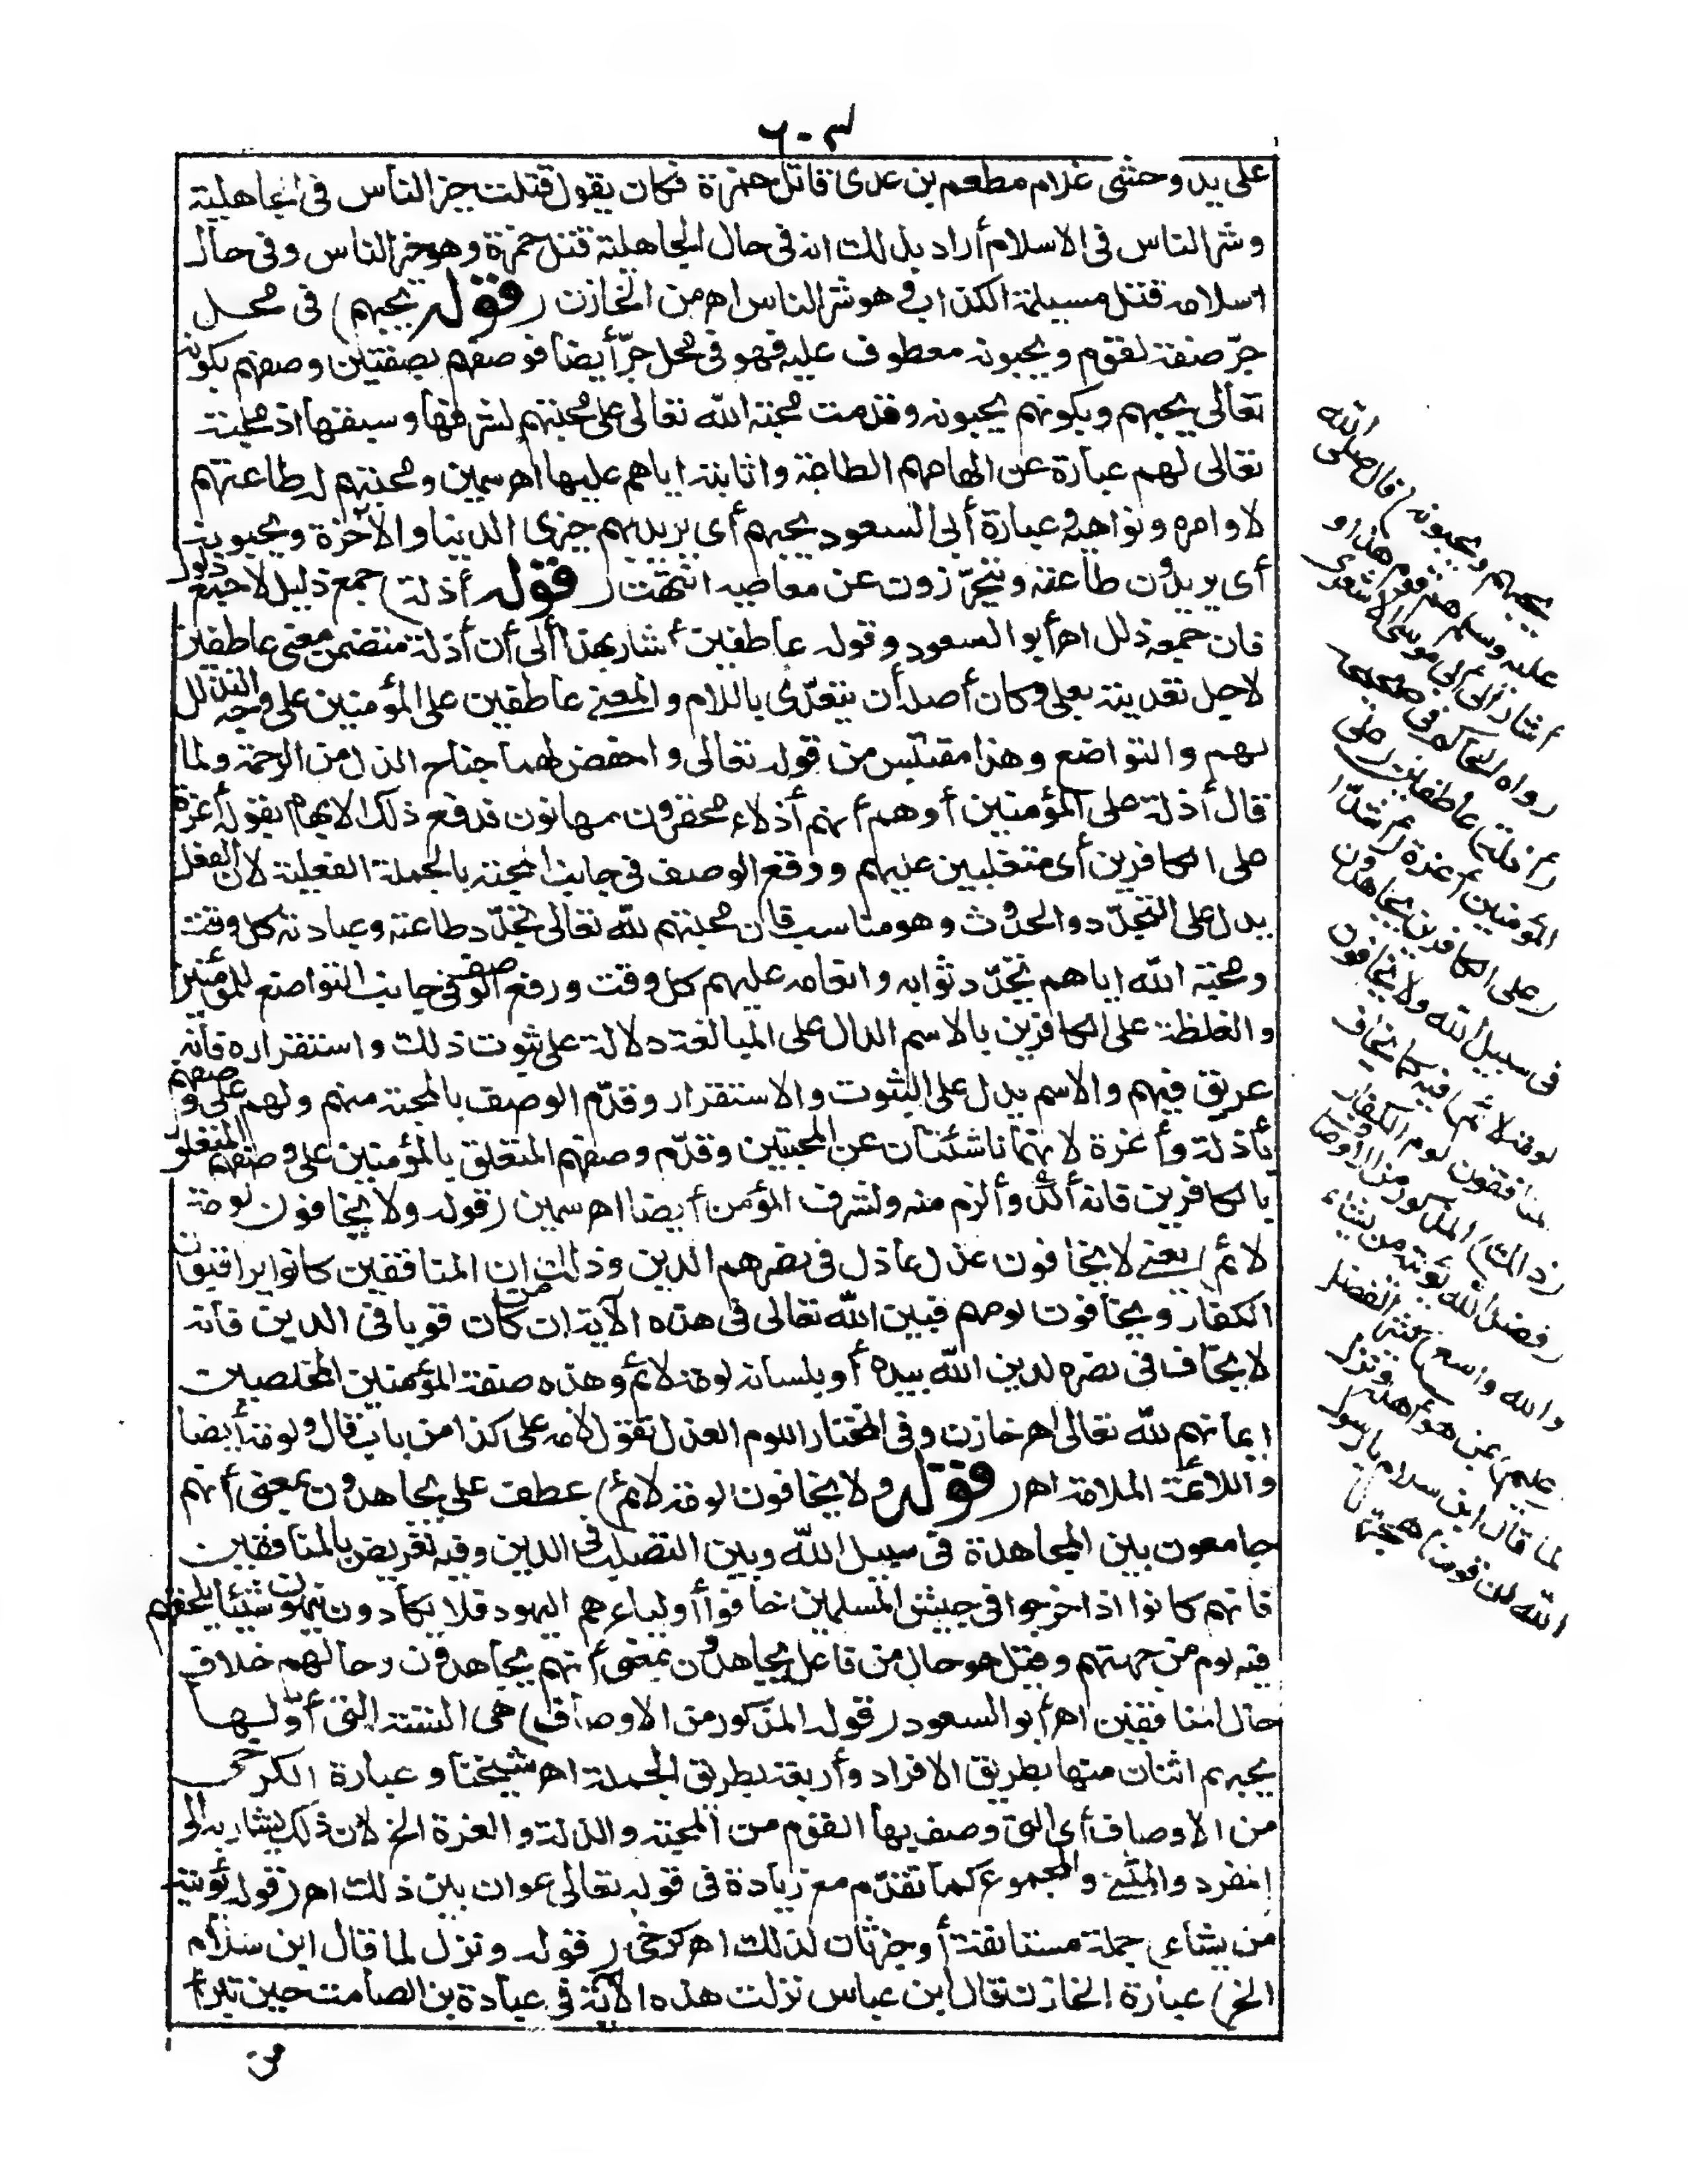 ٦٠٣
على يد وحشى غلام مطعم بن عدى قاتل حمزة فكان يقول قتلت خير الناس فى الجاهلية
وشر الناس فى الاسلام أراد بذلك انه فى حال الجاهلية قتل حمزة وهو خير الناس وفى حال
اسلامه قتل مسيلمة الكذاب وهو شر الناس اه من الخازن (قوله يحبهم) فى محل
جرّ صفة لقوم ويحبونه معطوف عليه فهو فى محل جرّ أيضا فوصفهم بصفتين وصفهم بكونه
تعالى يحبهم وبكونهم يحبونه وقدمت محبة الله تعالى على محبتهم لشرفها وسبقها اذ محبته
تعالى لهم عبارة عن الهامهم الطاعة واثابته اياهم عليها اه سمين ومحبتهم له طاعتهم
لاوامره ونواهيه وعبارة أبى السعود يحبهم أى يريد بهم خيرى الدنيا والآخرة ويحبونه
أى يريدون طاعته ويتحرّزون عن معاصيه انتهت (قوله أذلة) جمع ذليل لا جمع ذلول
فان جمعه ذلل اه أبو السعود وقوله عاطفين أشار بهذا الى أن أذلة متضمن معنى عاطفين
لاجل تعديته بعلى وكان أصله أن يتعدّى باللام والمعنى عاطفين على المؤمنين على وجه التذلل
لهم والتواضع وهذا مقتبس من قوله تعالى واخفض لهما جناح الذل من الرحمة ولما
قال أذلة على المؤمنين أوهم أنهم أذلاء محقرون مهانون فدفع ذلك الايهام بقوله أعزة
على الكافرين أى متغلبين عليهم ووقع الوصف فى جانب المحبة بالجملة الفعلية لان الفعل
يدل على التجدّد والحدوث وهو مناسب فان محبتهم لله تعالى تجدّد طاعته وعبادته كل وقت
ومحبة الله اياهم تجدّد ثوابه وانعامه عليهم كل وقت ووقع الوصف فى جانب التواضع للمؤمنين
والغلظة على الكافرين بالاسم الدال على المبالغة دلالة على ثبوت ذلك واستقراره فانه
عريق فيهم والاسم يدل على الثبوت والاستقرار وقدّم الوصف بالمحبة منهم ولهم على وصفهم
بأذلة وأعزة لانهما ناشئتان عن المحبتين وقدّم وصفهم المتعلق بالمؤمنين على وصفهم المتعلق
بالكافرين فانه آكد وألزم منه ولشرف المؤمن أيضا اه سمين (قوله ولا يخافون لومة
لائم) يعنى لا يخافون عذل عاذل فى نصرهم الدين وذلك ان المنافقين كانوا يراقبون
الكفار ويخافون لومهم فبين الله تعالى فى هذه الآية ان من كان قويا فى الدين فانه
لا يخاف فى نصره لدين الله بيده أو بلسانه لومة لائم وهذه صفة المؤمنين المخلصين
ايمانهم لله تعالى اه خازن وفى المختار اللوم العذل تقول لامه على كذا من باب قال ولومة أيضا
واللائمة الملامة اه (قوله ولا يخافون لومة لائم) عطف على يجاهدون بمعنى أنهم
جامعون بين المجاهدة فى سبيل الله وبين التصلب فى الدين وفيه تعريض بالمنافقين
فانهم كانوا اذا خرجوا فى جيش المسلمين خافوا أولياءهم اليهود فلا يكادون يعملون شيئا يلحقهم
فيه لوم من جهتهم وقيل هو حال من فاعل يجاهدون بمعنى أنهم يجاهدون وحالهم خلاف
حال المنافقين اه أبو السعود (قوله المذكور من الاوصاف) هى الستة التى أولها
يحبهم اثنان منها بطريق الافراد وأربعة بطريق الجملة اه شيخنا وعبارة الكرخى
من الاوصاف أى التى وصف بها القوم من المحبة والذلة والعزة الخ لان ذلك يشار به الى
المفرد والمثنى والمجموع كما تقدّم مع زيادة فى قوله تعالى عوان بين ذلك اه (قوله يؤتيه
من يشاء) جملة مستانفة أو خبر ثان لذلك اه كرخى (قوله ونزل لما قال ابن سلام
الخ) عبارة الخازن قال ابن عباس نزلت هذه الآية فى عبادة بن الصامت حين تبرأ
من
يحبهم ويحبونه) قال صلى الله
عليه وسلم هم قوم هذا و
أشار الى أبى موسى الاشعرى
رواه الحاكم فى صحيحه
(أذلة) عاطفين (على
المؤمنين أعزة) أشدّاء
(على الكافرين يجاهدون
فى سبيل الله ولا يخافون
لومة لائم) فيه كما يخاف
المنافقون لوم الكفار
(ذلك) المذكور من الاوصاف
(فضل الله يؤتيه من يشاء
والله واسع) كثير الفضل
(عليم) بمن هو أهله ونزل
لما قال ابن سلام يا رسول
الله ان قومنا هجرونا